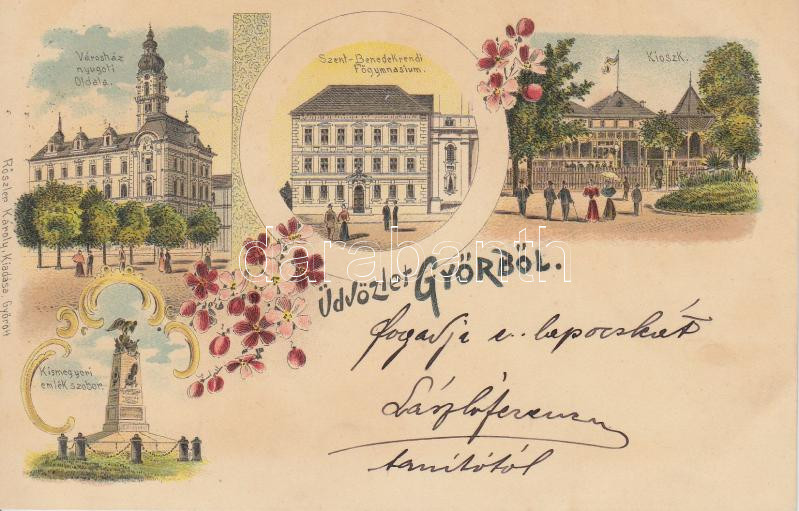 Városház
nyugoti
Oldala.
Szent-Benedekrendi
Főgymnasium.
Kioszk.
Rószler Károly, Kiadása, Győrött
Kismegyeri
emlék szobor.
Üdvözlet GYŐRBŐL.
darabanth
fogadja e lapocskát
Lászlóferencz
tanítótól